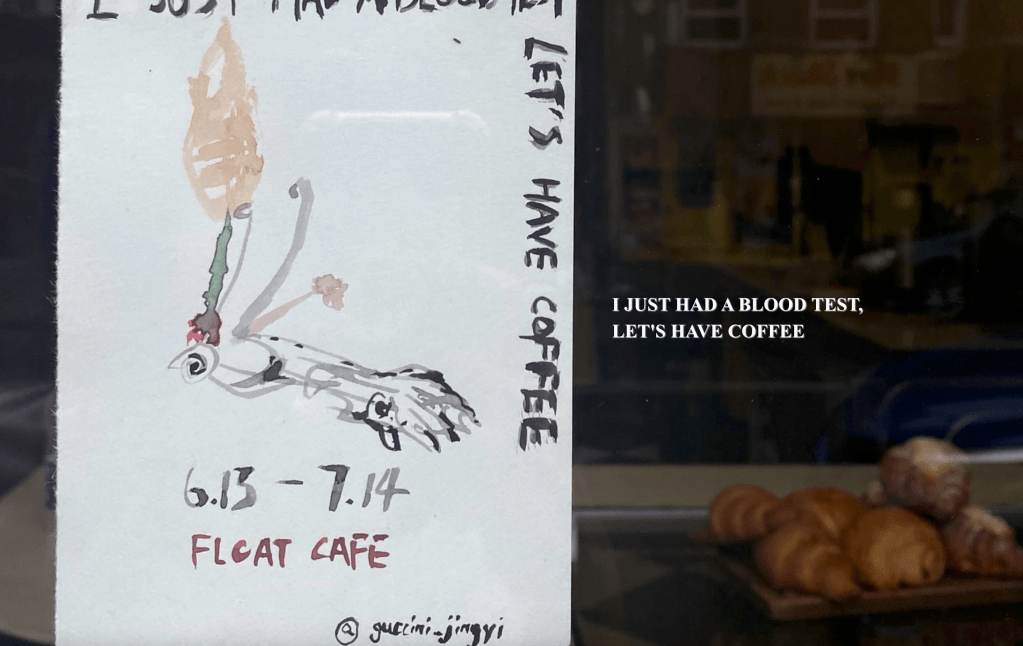 I JUST HAD A BLOOD TEST
LET'S HAVE COFFEE
6.13 - 7.14
FLOAT CAFE
@guccini_jingyi
I JUST HAD A BLOOD TEST,
LET'S HAVE COFFEE